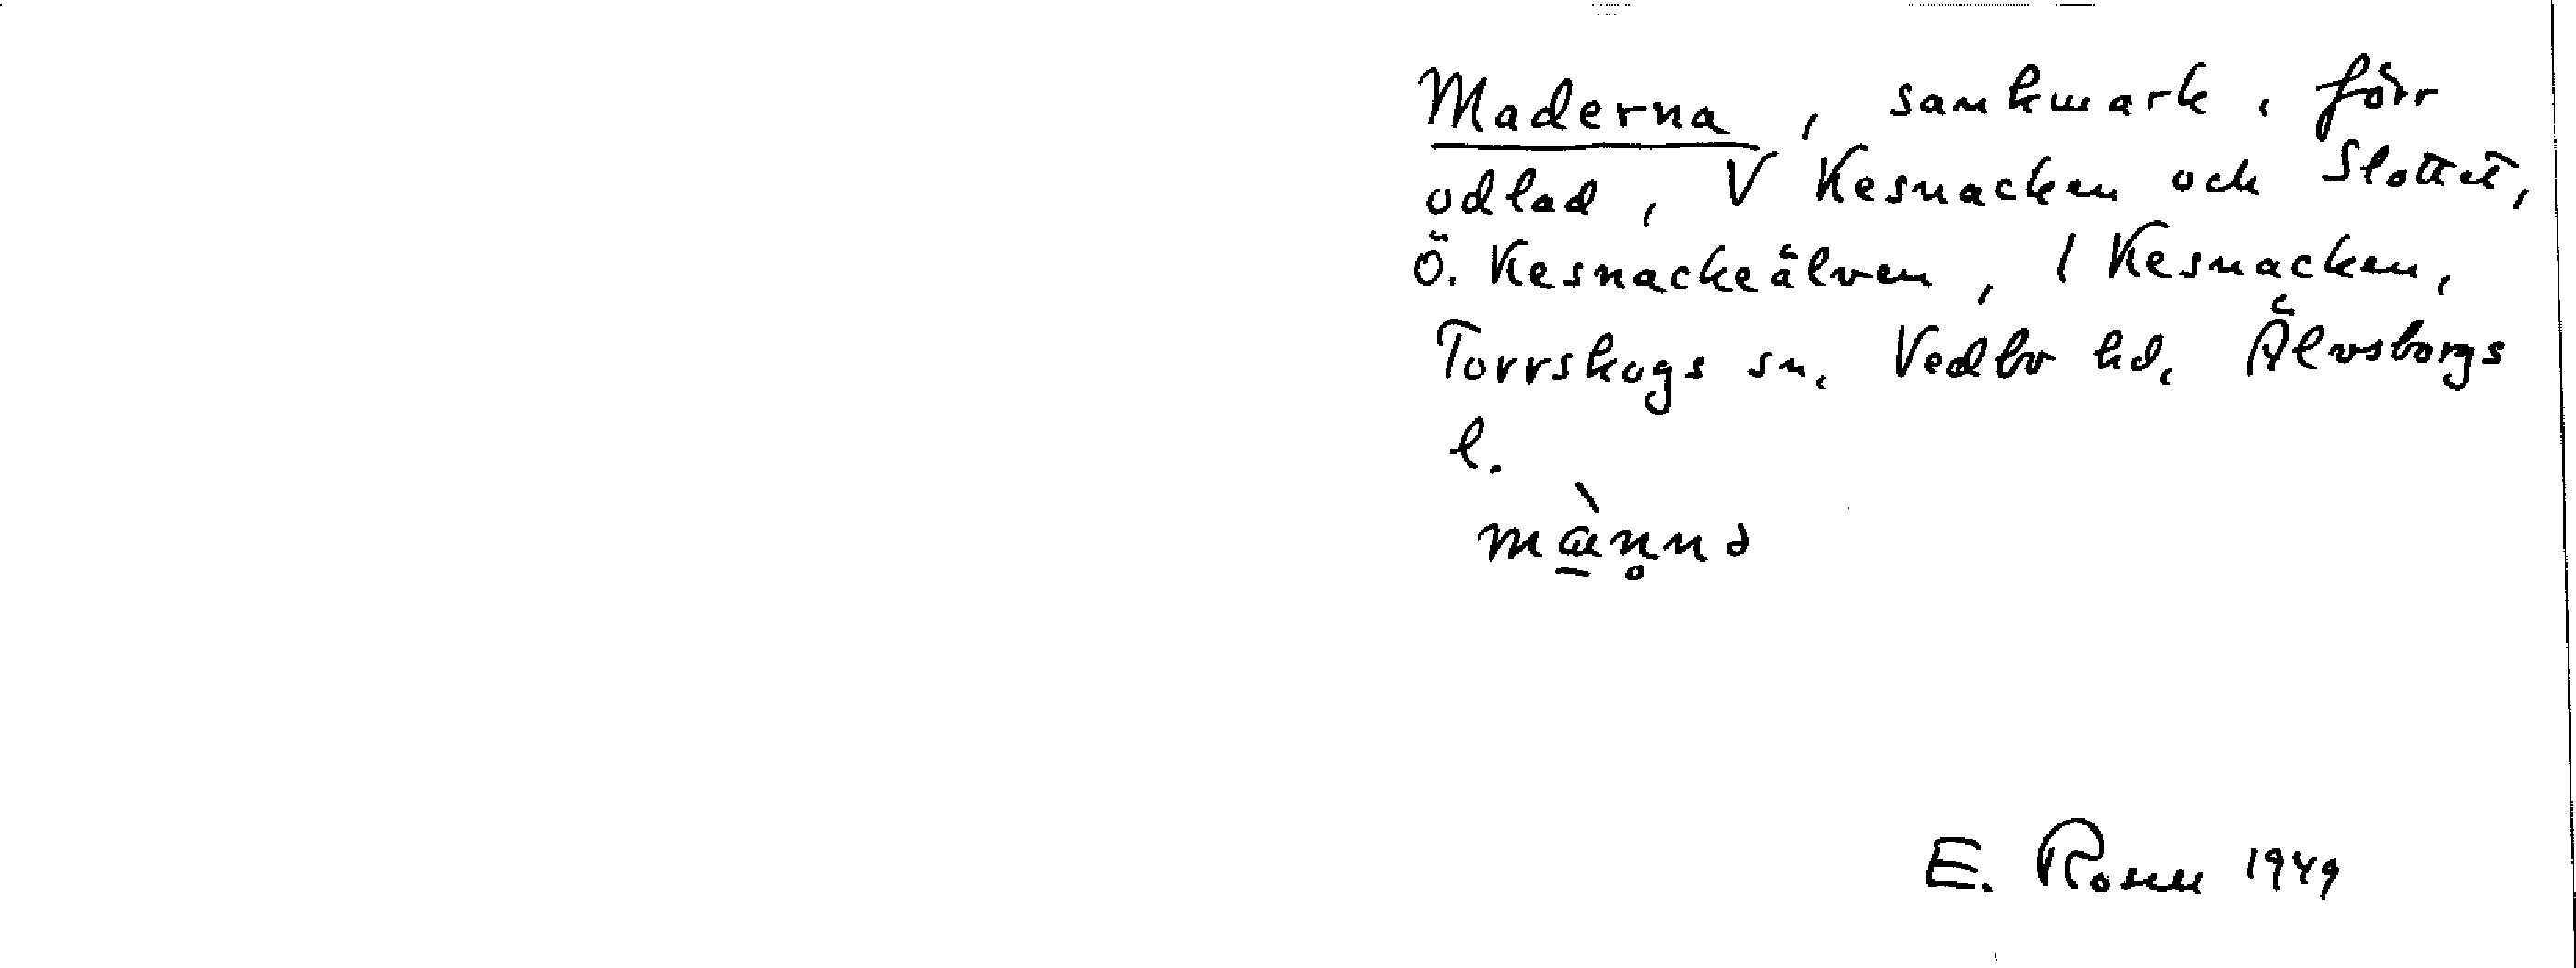 Maderna, sankmark, förr
odlad, V Kesnacken och Slottet,
Ö. Kesnackeälven, 1 Kesnacken,
Torrskogs sn, Vedbo hd, Älvsborgs
l.
E. Rosell 1949